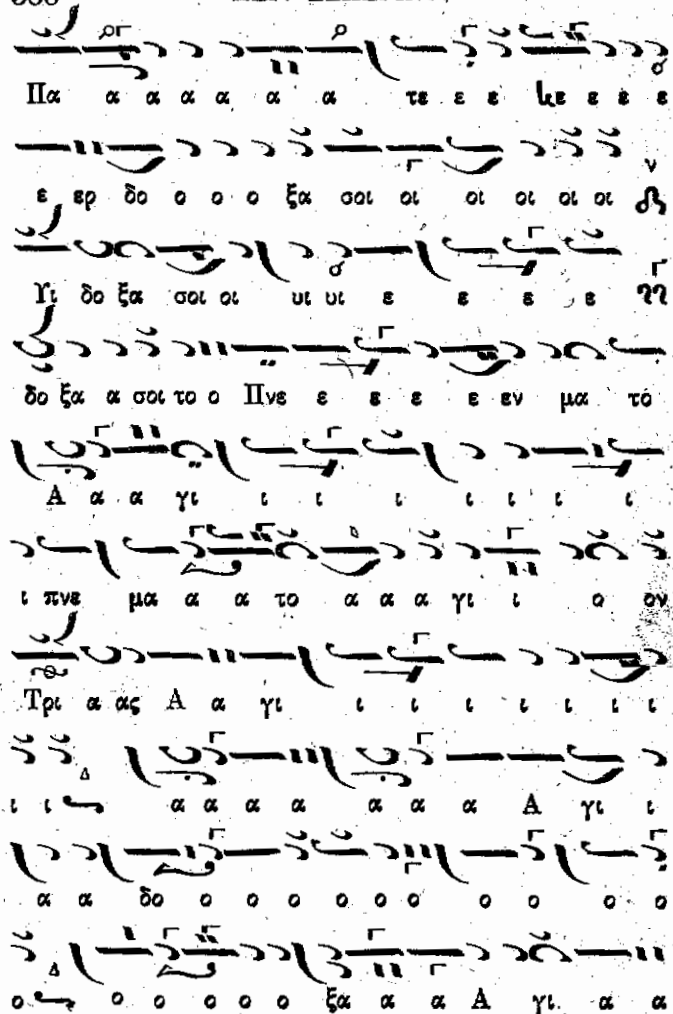 Πα α α α α α α τε ε ε κε ε ε ε
ε ερ δο ο ο ο ξα σοι οι οι οι οι οι
Υι δο ξα σοι οι υι υι ε ε ε ε
δο ξα α σοι το ο Πνε ε ε ε ε εν μα το
Α α α γι ι ι ι ι ι ι ι
ι πνε μα α α το α α α γι ι ο ον
Τρι α ας Α α γι ι ι ι ι ι ι
ι ι α α α α α α α Α γι ι
α α δο ο ο ο ο ο ο ο ο ο
ο ο ο ο ο ο ξα α α Α γι α α